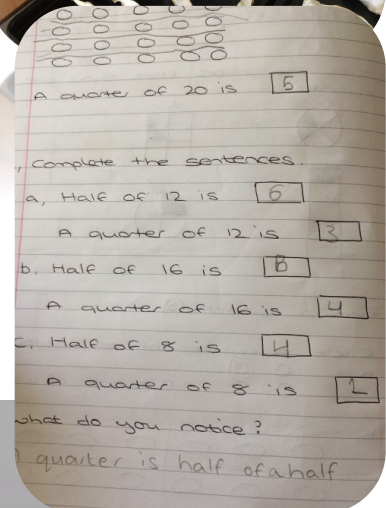 A quarter of 20 is 5
, Complete the sentences.
a, Half of 12 is 6
A quarter of 12 is 3
b. Half of 16 is 8
A quarter of 16 is 4
c, Half of 8 is 4
A quarter of 8 is
what do you notice?
A quarter is half of a half